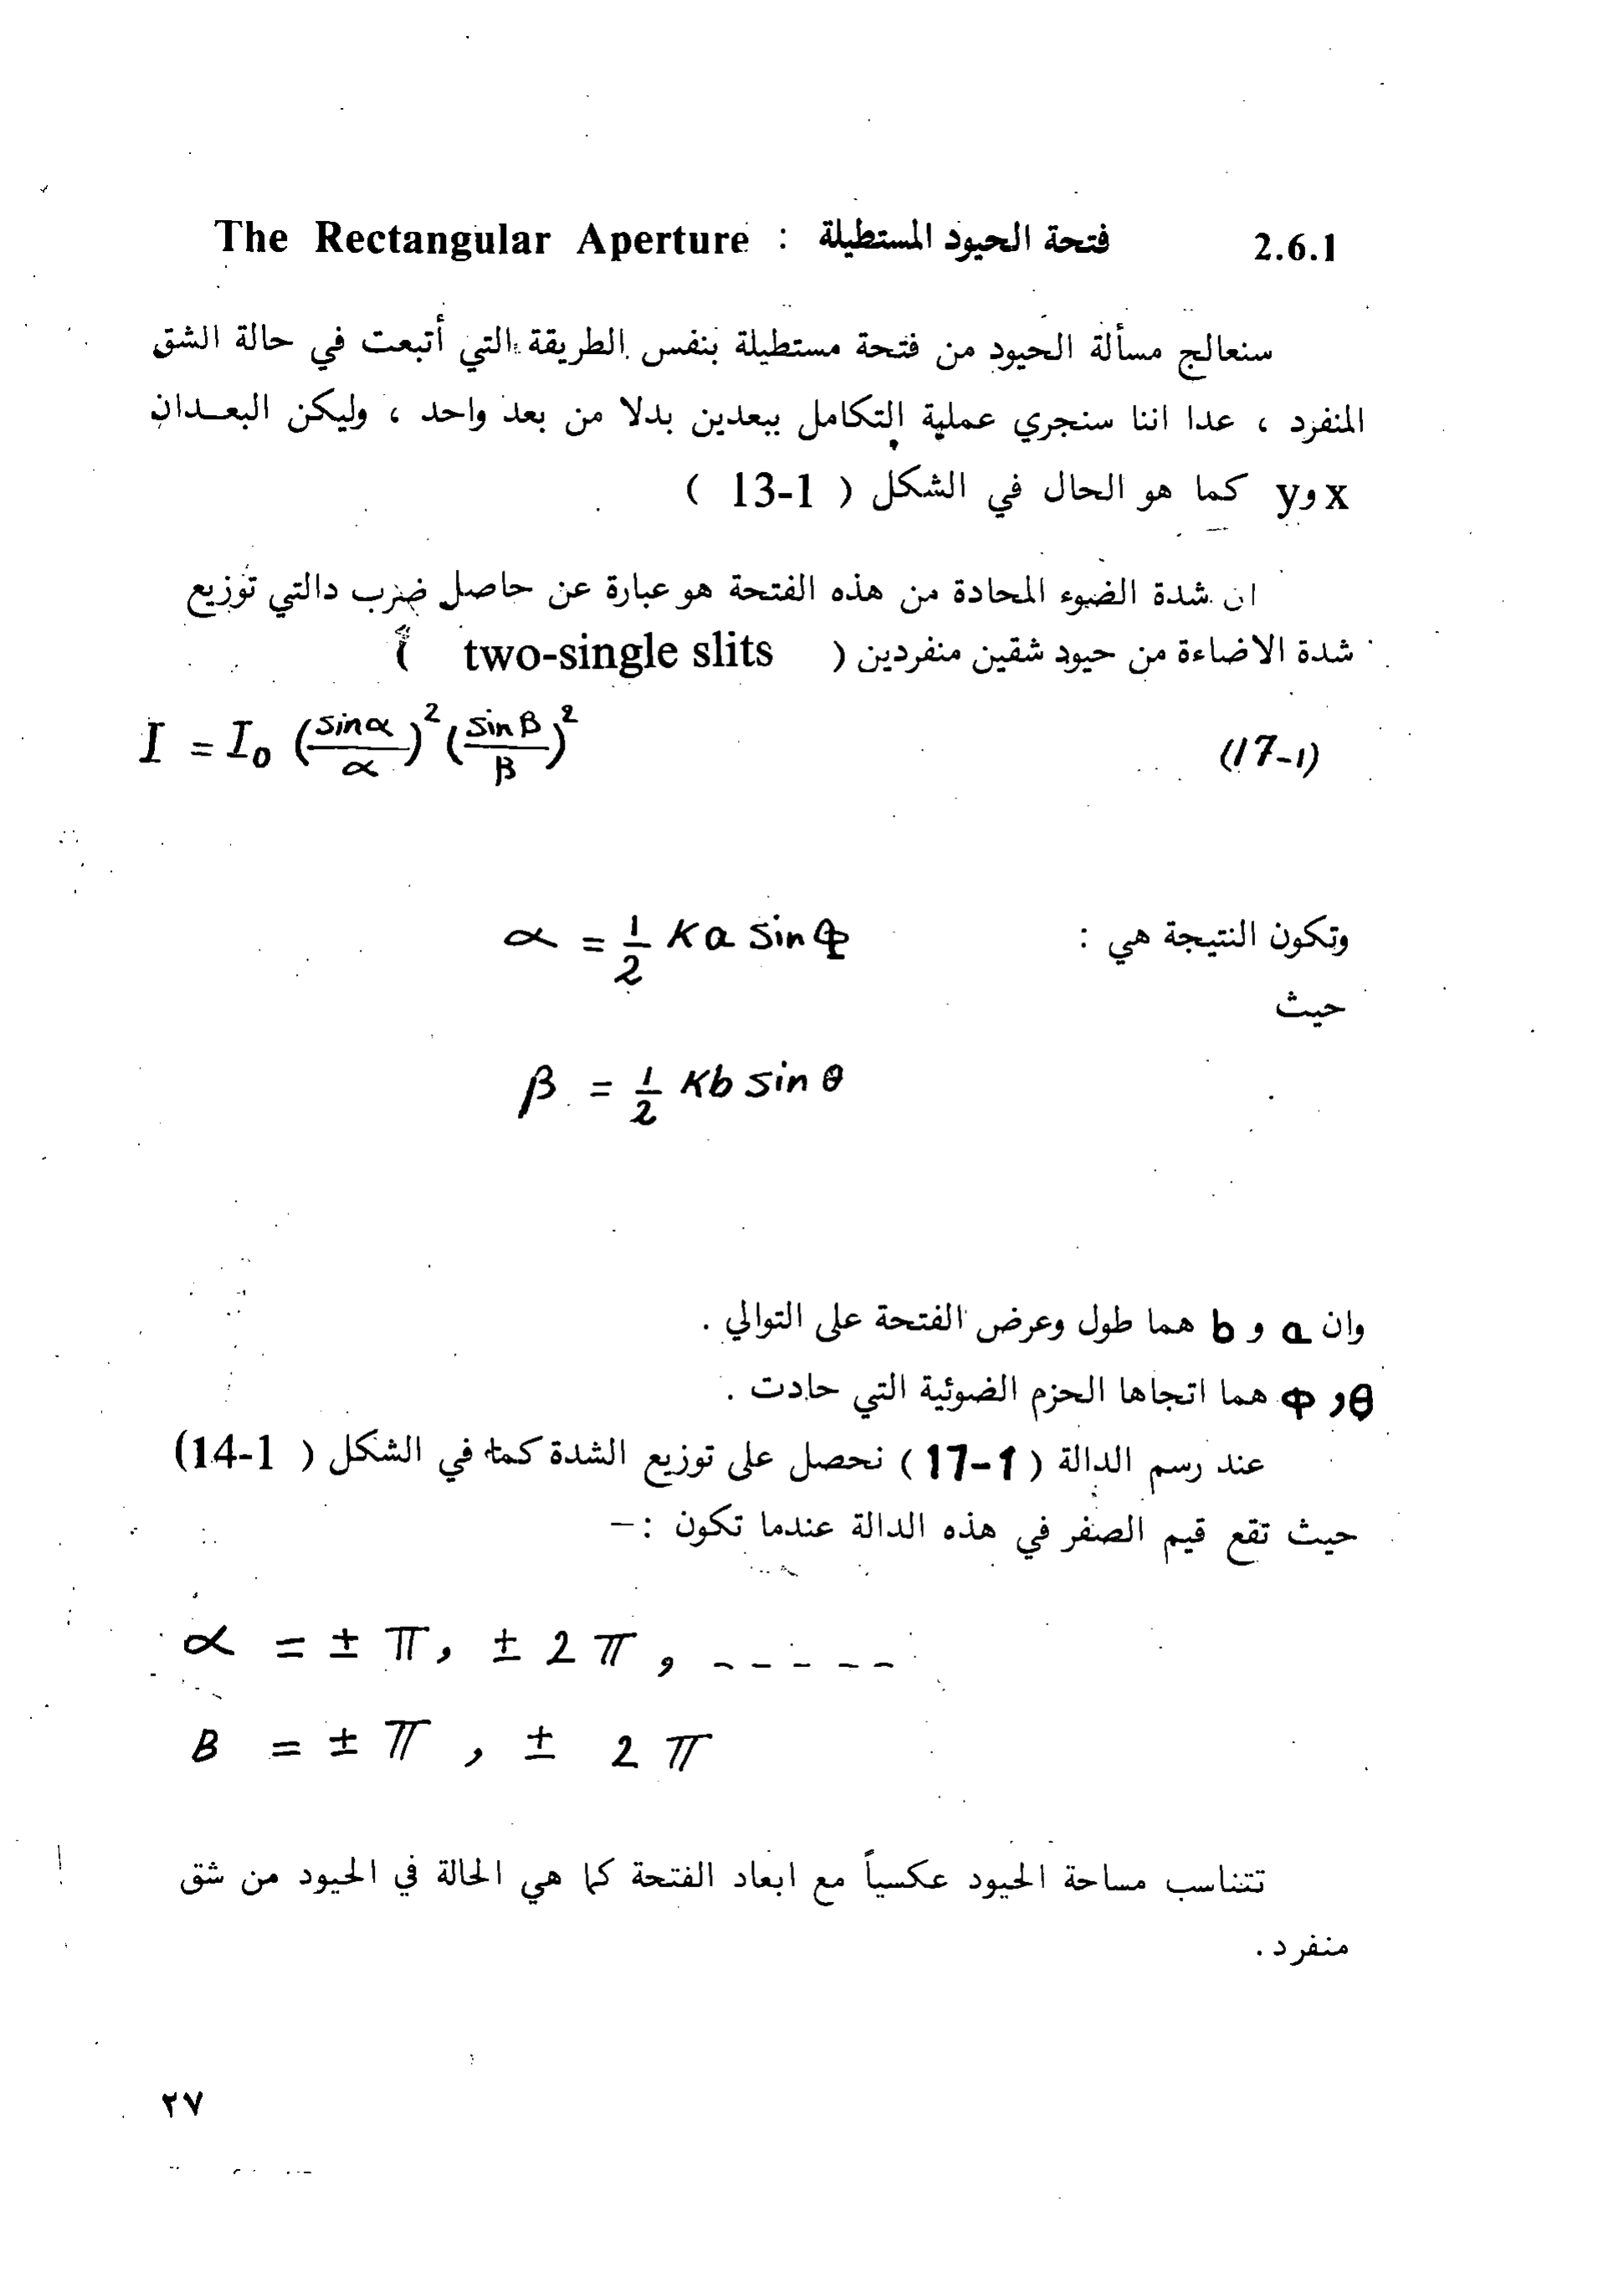 2.6.1 فتحة الحيود المستطيلة : The Rectangular Aperture
سنعالج مسألة الحيود من فتحة مستطيلة بنفس الطريقة التي أتبعت في حالة الشق
المنفرد ، عدا اننا سنجري عملية التكامل ببعدين بدلا من بعد واحد ، وليكن البعدان
x وy كما هو الحال في الشكل ( 13-1 )
ان شدة الضوء المحادة من هذه الفتحة هو عبارة عن حاصل ضرب دالتي توزيع
شدة الاضاءة من حيود شقين منفردين ( two-single slits )
I = I₀ (sinα/α)² (sinβ/β)² (17-1)
وتكون النتيجة هي : α = 1/2 K a sin Φ
حيث
β = 1/2 K b sin θ
وان a و b هما طول وعرض الفتحة على التوالي .
θ و Φ هما اتجاها الحزم الضوئية التي حادت .
عند رسم الدالة ( 17-1 ) نحصل على توزيع الشدة كما في الشكل ( 14-1 )
حيث تقع قيم الصفر في هذه الدالة عندما تكون :–
α = ± π, ± 2 π, - - - - -
B = ± π , ± 2 π
تتناسب مساحة الحيود عكسياً مع ابعاد الفتحة كما هي الحالة في الحيود من شق
منفرد .
٢٧